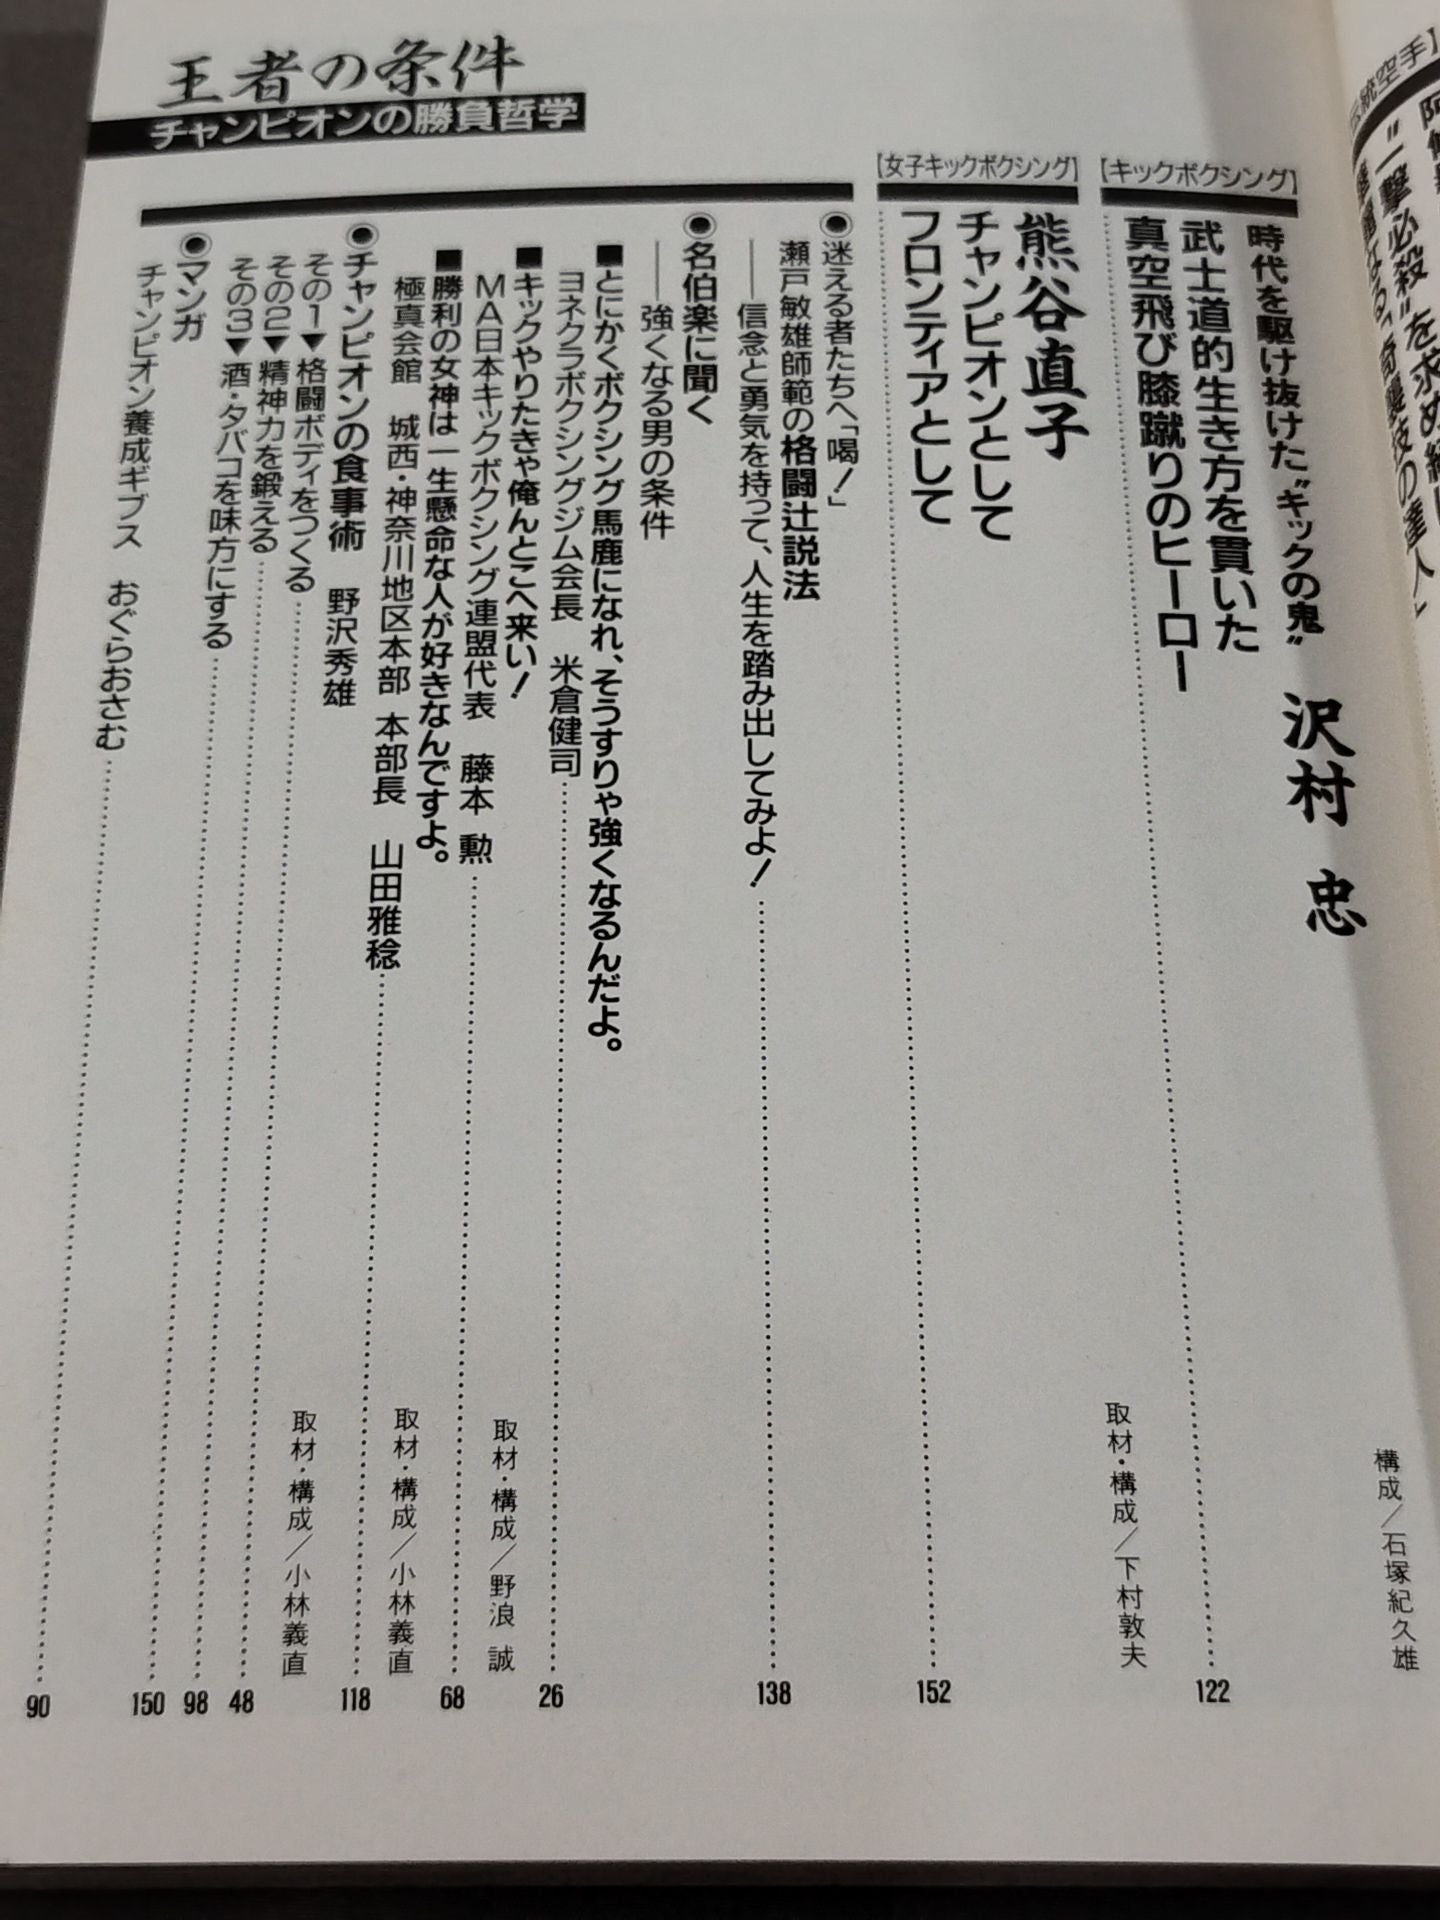 王者の条件
チャンピオンの勝負哲学
統空手】
"一撃必殺"を求め続け
構成／石塚紀久雄
【キックボクシング】
時代を駆け抜けた"キックの鬼" 沢村 忠
武士道的生き方を貫いた
真空飛び膝蹴りのヒーロー
122
取材・構成／下村敦夫
【女子キックボクシング】
熊谷直子
チャンピオンとして
フロンティアとして
152
◉迷える者たちへ「喝！」
瀬戸敏雄師範の格闘辻説法
――信念と勇気を持って、人生を踏み出してみよ！
138
◉名伯楽に聞く
――強くなる男の条件
■とにかくボクシング馬鹿になれ、そうすりゃ強くなるんだよ。
ヨネクラボクシングジム会長 米倉健司
26
取材・構成／野浪 誠
■キックやりたきゃ俺んとこへ来い！
MA日本キックボクシング連盟代表 藤本 勲
68
取材・構成／小林義直
■勝利の女神は一生懸命な人が好きなんですよ。
極真会館 城西・神奈川地区本部 本部長 山田雅稔
118
取材・構成／小林義直
◉チャンピオンの食事術 野沢秀雄
その1▼格闘ボディをつくる
48
その2▼精神力を鍛える
98
その3▼酒・タバコを味方にする
150
◉マンガ
チャンピオン養成ギブス おぐらおさむ
90